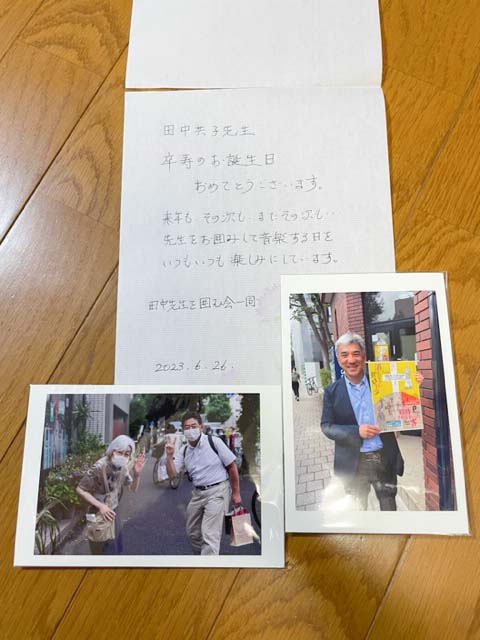 田中共子先生
卒寿のお誕生日
おめでとうございます。
来年も、その次も、またその次も‥
先生をお囲みして音楽する日を
いつもいつも楽しみにしています。
田中先生を囲む会一同
2023.6.26.